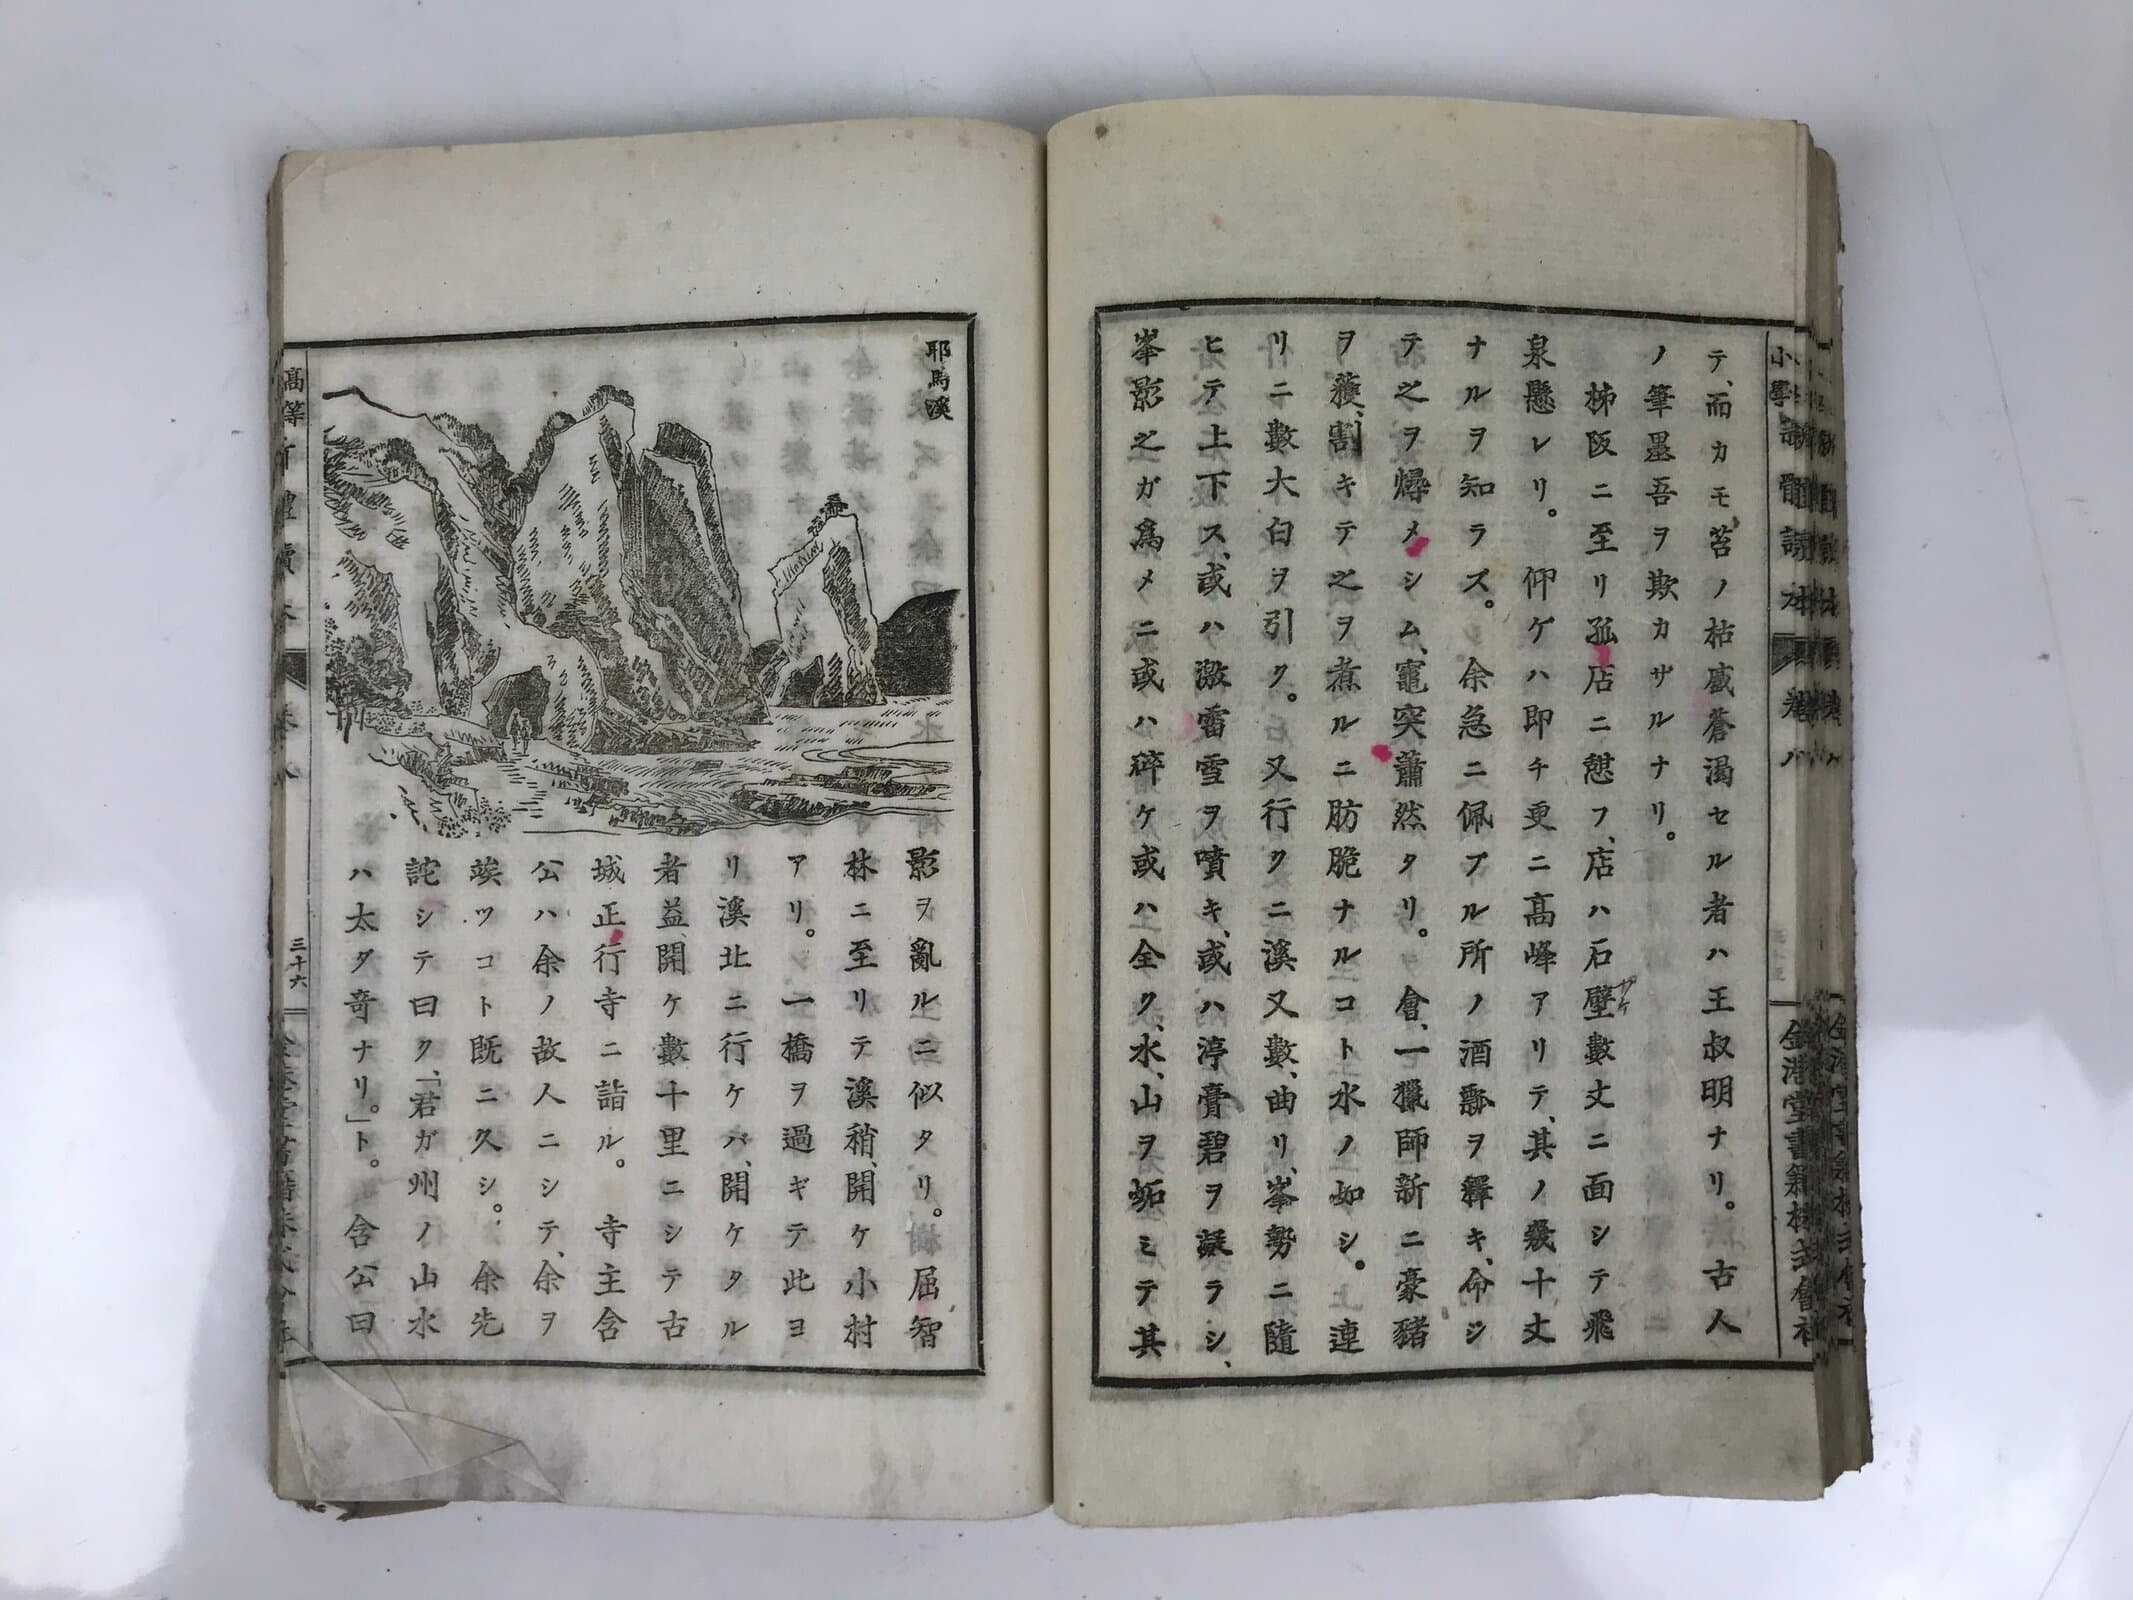 テ、而カモ苔ノ枯戚蒼渴セル者ハ王叔明ナリ。古人
ノ筆墨吾ヲ欺カザルナリ。
柿阪ニ至リ孤店ニ憩フ、店ハ石壁數丈ニ面シテ飛
泉懸レリ。仰ゲハ即チ更ニ高峰アリテ、其ノ幾十丈
ナルヲ知ラズ。余急ニ佩ブル所ノ酒瓢ヲ釋キ、命ジ
テ之ヲ燖メシム、竈突蕭然タリ。會、一獵師新ニ豪豬
ヲ獲、割キテ之ヲ煮ルニ肪脆ナルコト水ノ如シ。連
リニ數大白ヲ引ク。又行クニ溪又數、曲リ、峯勢ニ隨
ヒテ上下ス、或ハ激雷雪ヲ噴キ、或ハ渟膏碧ヲ凝ラシ、
峯影之ガ爲メニ或ハ碎ケ或ハ全ク、水、山ヲ妬ミテ其
小學
讀本
卷八
金港堂書籍株式會社
耶馬溪
影ヲ亂ルニ似タリ。屈智
林ニ至リテ溪稍、開ケ小村
アリ。一橋ヲ過ギテ此ヨ
リ溪北ニ行ケバ、開ケタル
者益、開ケ數十里ニシテ古
城、正行寺ニ詣ル。寺主含
公ハ余ノ故人ニシテ、余ヲ
竢ツコト既ニ久シ。余先
詫シテ曰ク、「君ガ州ノ山水
ハ太タ奇ナリ。」ト。含公曰
高等
體讀本
卷八
三十六